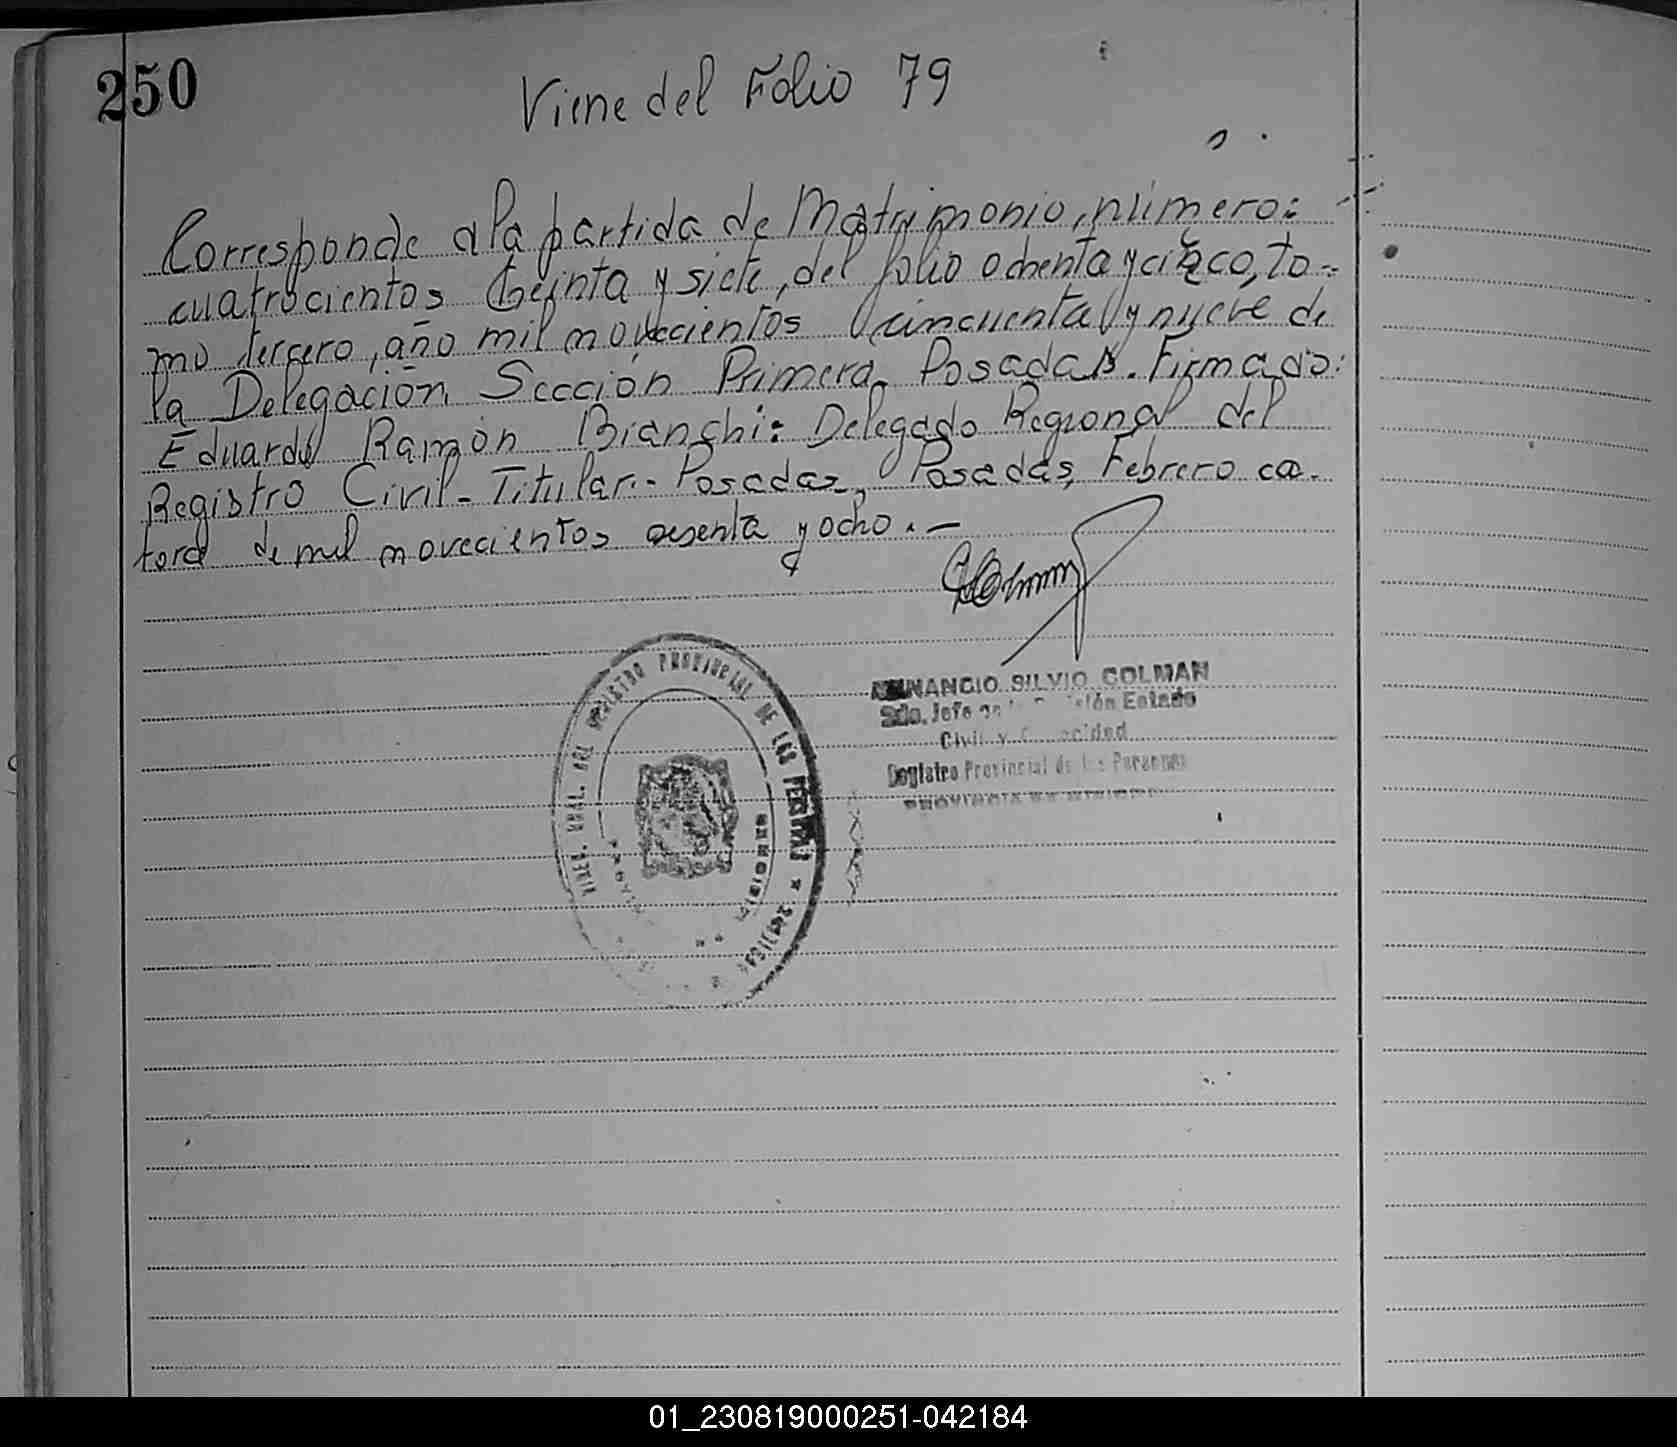 250
Viene del Folio 79
Corresponde a la partida de Matrimonio, número:
cuatrocientos treinta y siete, del folio ochenta y cinco, to-
mo tercero, año mil novecientos cincuenta y nueve de
la Delegación Sección Primera. Posadas. Firmado:
Eduardo Ramón Bianchi: Delegado Regional del
Registro Civil - Titular.- Posadas, Posadas, Febrero ca-
torce de mil novecientos sesenta y ocho.-
SILVIO COLMAN
2do. Jefe Estado
Civil y
Provincial de las Personas
REGISTRO PROVINCIAL DE LAS PERSONAS
01_230819000251-042184